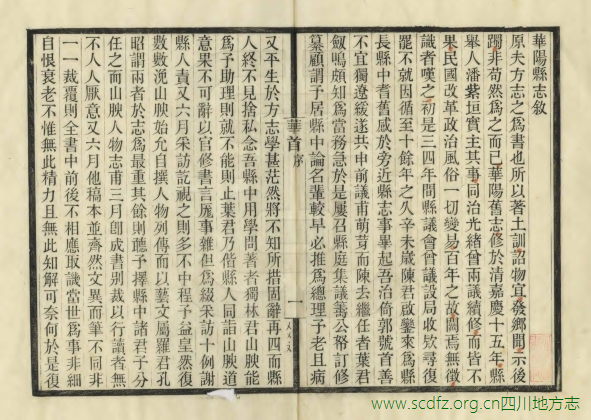 華陽縣志敘
原夫方志之爲書也所以著土訓詔物宜發鄉閭示後
躅非苟然爲之而已華陽舊志修於清嘉慶十五年縣
舉人潘紫垣實主其事同治光緒曾兩議續修而皆不
果民國改革政治風俗一切變易百年之故闕焉無徵
識者嘆之初是三四年間縣議會曾議設局收欵尋復
罷不就因循至十餘年之久辛未歲陳君啟鑒來爲縣
長縣中耆舊感於旁近縣志事畢起吾治倚郭號首善
不宜獨遼緩遂共申前議甫萌芽而陳去繼任者葉君
劔鳴頗知爲當務急於是屢召縣庭集議籌公帑訂修
纂顧謂予居縣中論名輩較早必推爲總理予老且病
華首
序
一
又平生於方志學甚茫然將不知所措固辭再四而縣
人終不見捨私念吾縣中用學問著者獨林君山腴能
爲予助理則就不能則止葉君乃偕縣人同詣山腴道
意果不可辭以官修書言厖事雜但爲綴采訪十例謝
縣人責又六月采訪訖視之則多不中程予益皇然復
數數浼山腴始允自撰人物列傳而以藝文屬羅君孔
昭謂兩者於志爲最重其餘則聽予擇縣中諸君子分
任之而山腴人物志甫三月卽成書別裁以行讀者無
不人人厭意又六月他稿本並齊然文異而筆不同非
一一裁覆則全書中前後不相應取譏當世爲事非細
自恨衰老不惟無此精力且無此知解可奈何於是復
www.scdfz.org.cn四川地方志